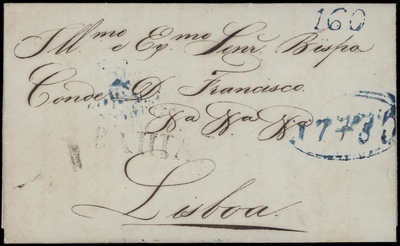 160
Ill.mo e Ex.mo Senr. Bispo
Conde D. Francisco
&a &a &a
BAHIA
Lisboa.